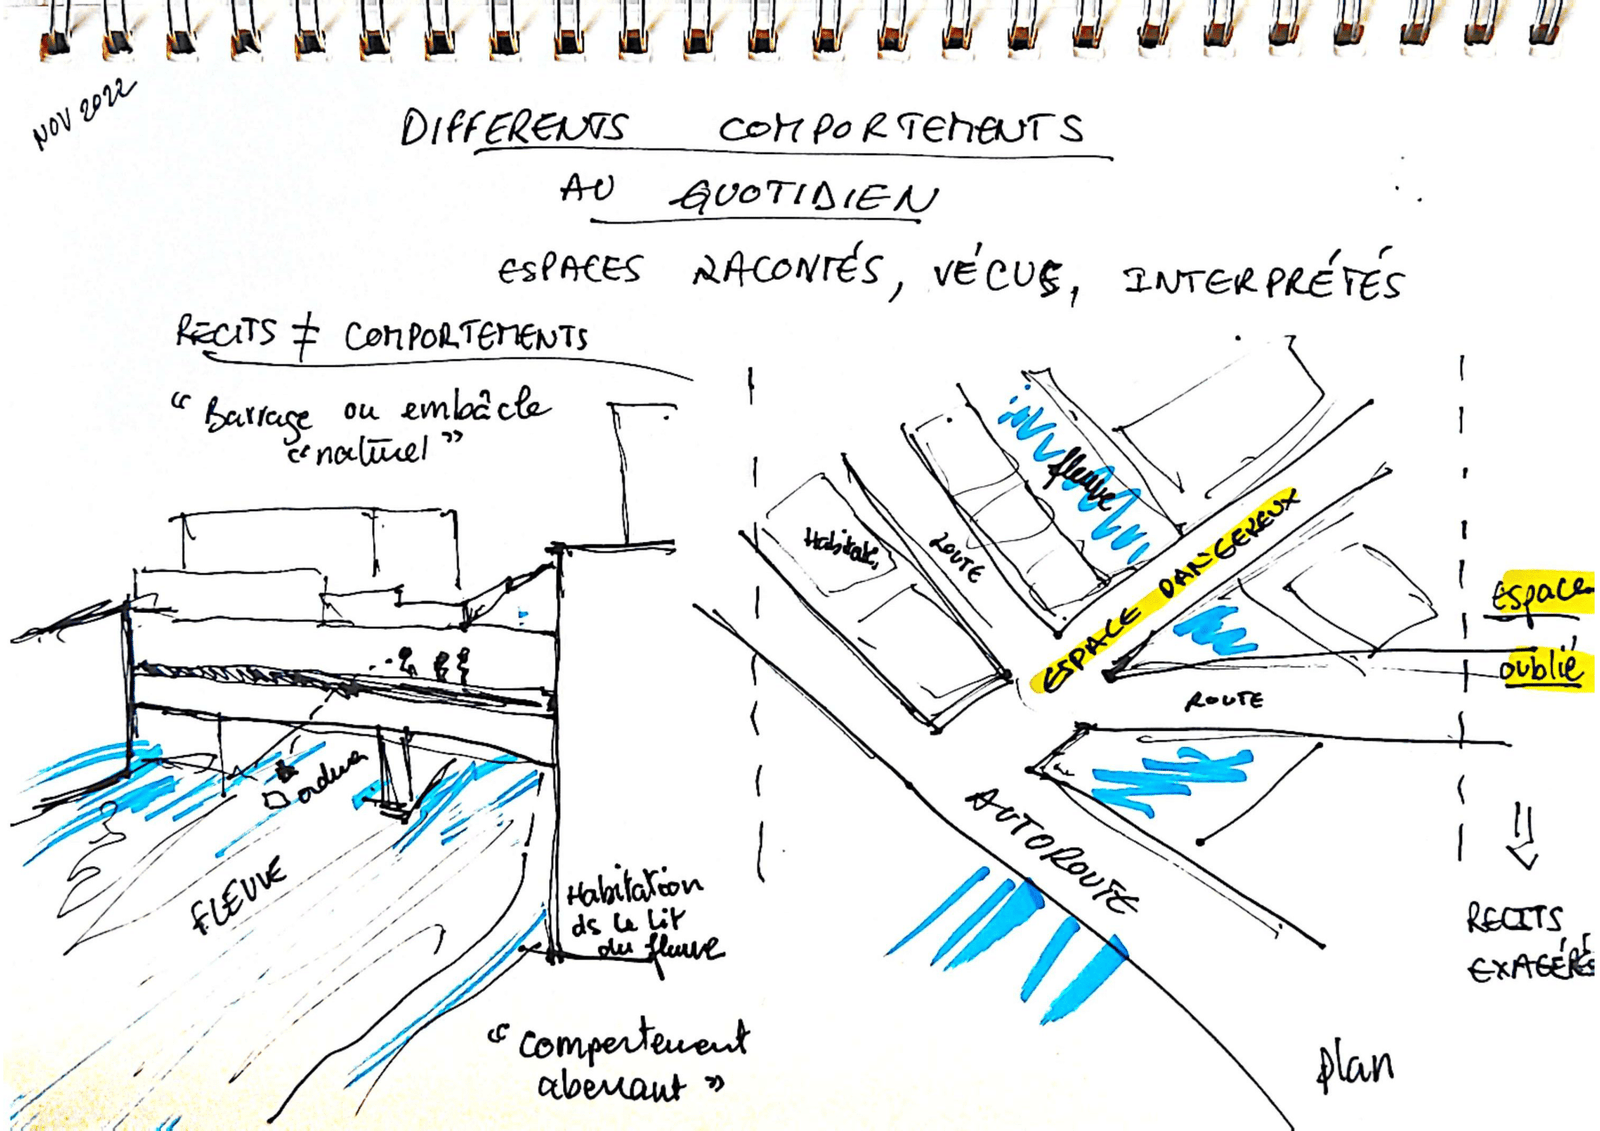 NOV 2022
DIFFERENTS COMPORTEMENTS
AU QUOTIDIEN
ESPACES RACONTÉS, VÉCUS, INTERPRÉTÉS
RECITS ≠ COMPORTEMENTS
“Barrage ou embâcle
“naturel”
fleuve
Habitats
ROUTE
ESPACE DANGEREUX
Espace
oublié
ROUTE
Ordures
AUTOROUTE
FLEUVE
Habitation
ds le lit
du fleuve
⇓
RECITS
EXAGÉRÉS
“Comportement
aberrant”
plan